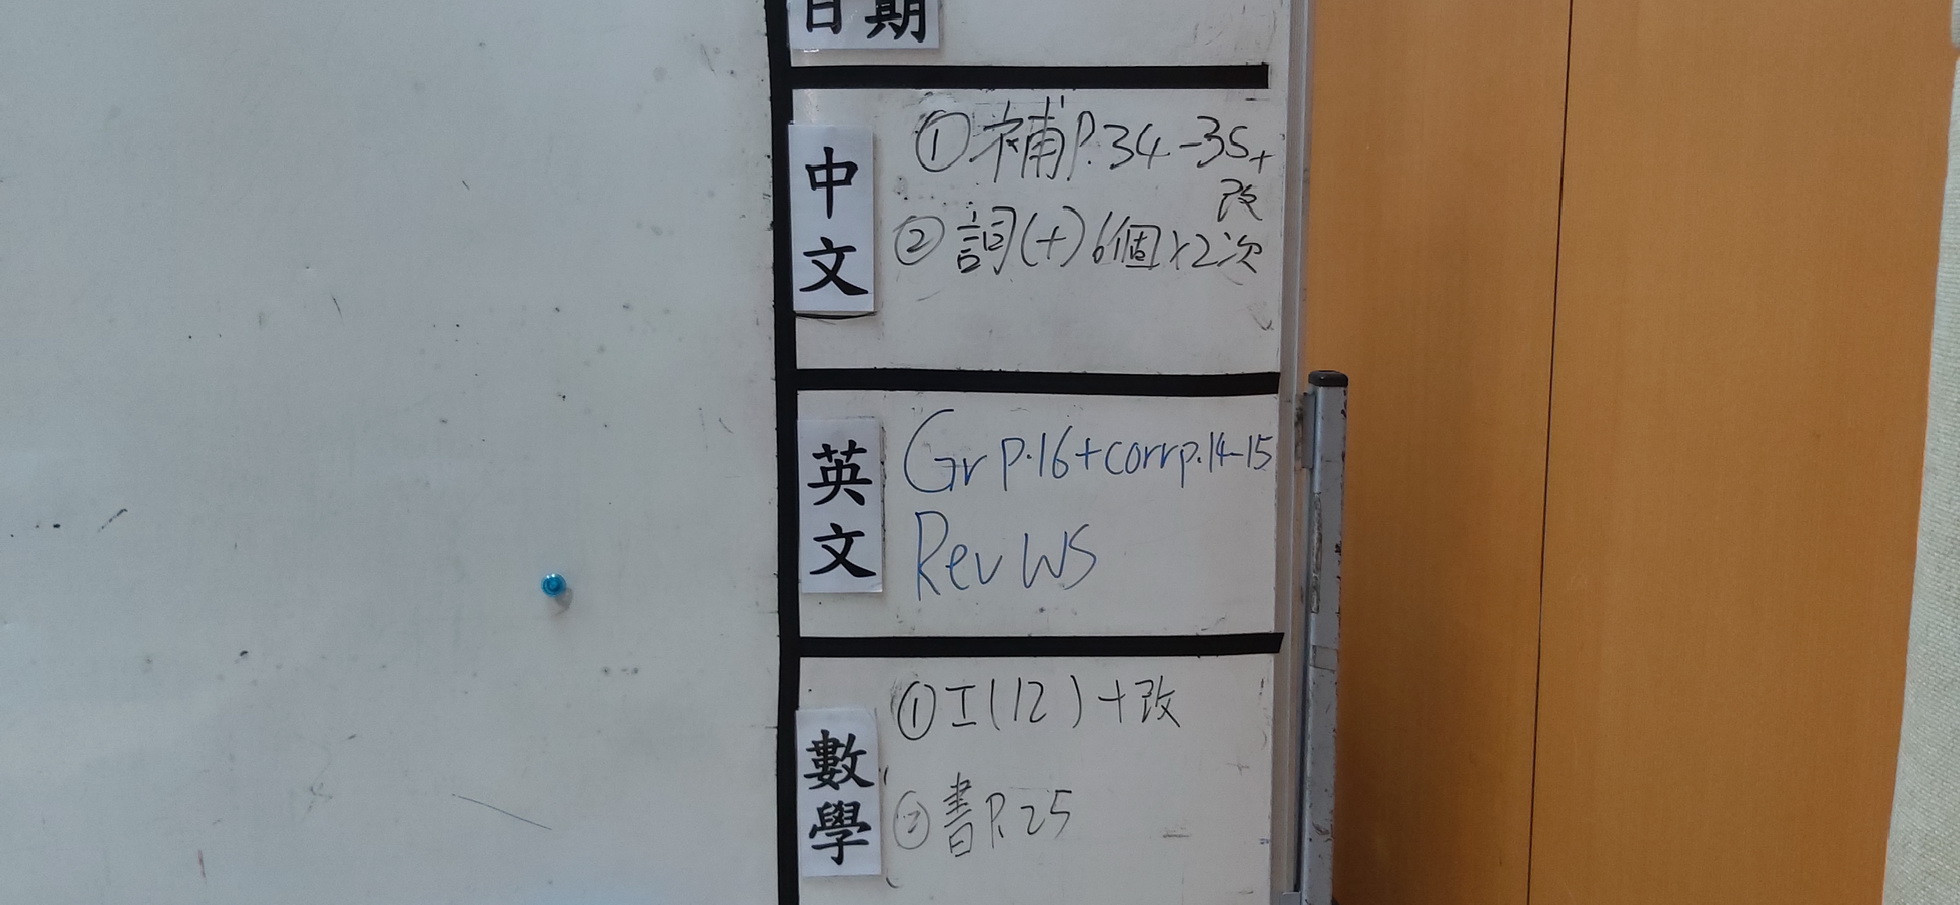 日期
中文
①補P.34-35+
改
②詞(十)6個x2次
英文
Gr p.16+corrp.14-15
Rev WS
數學
①工(12)+改
②書P.25